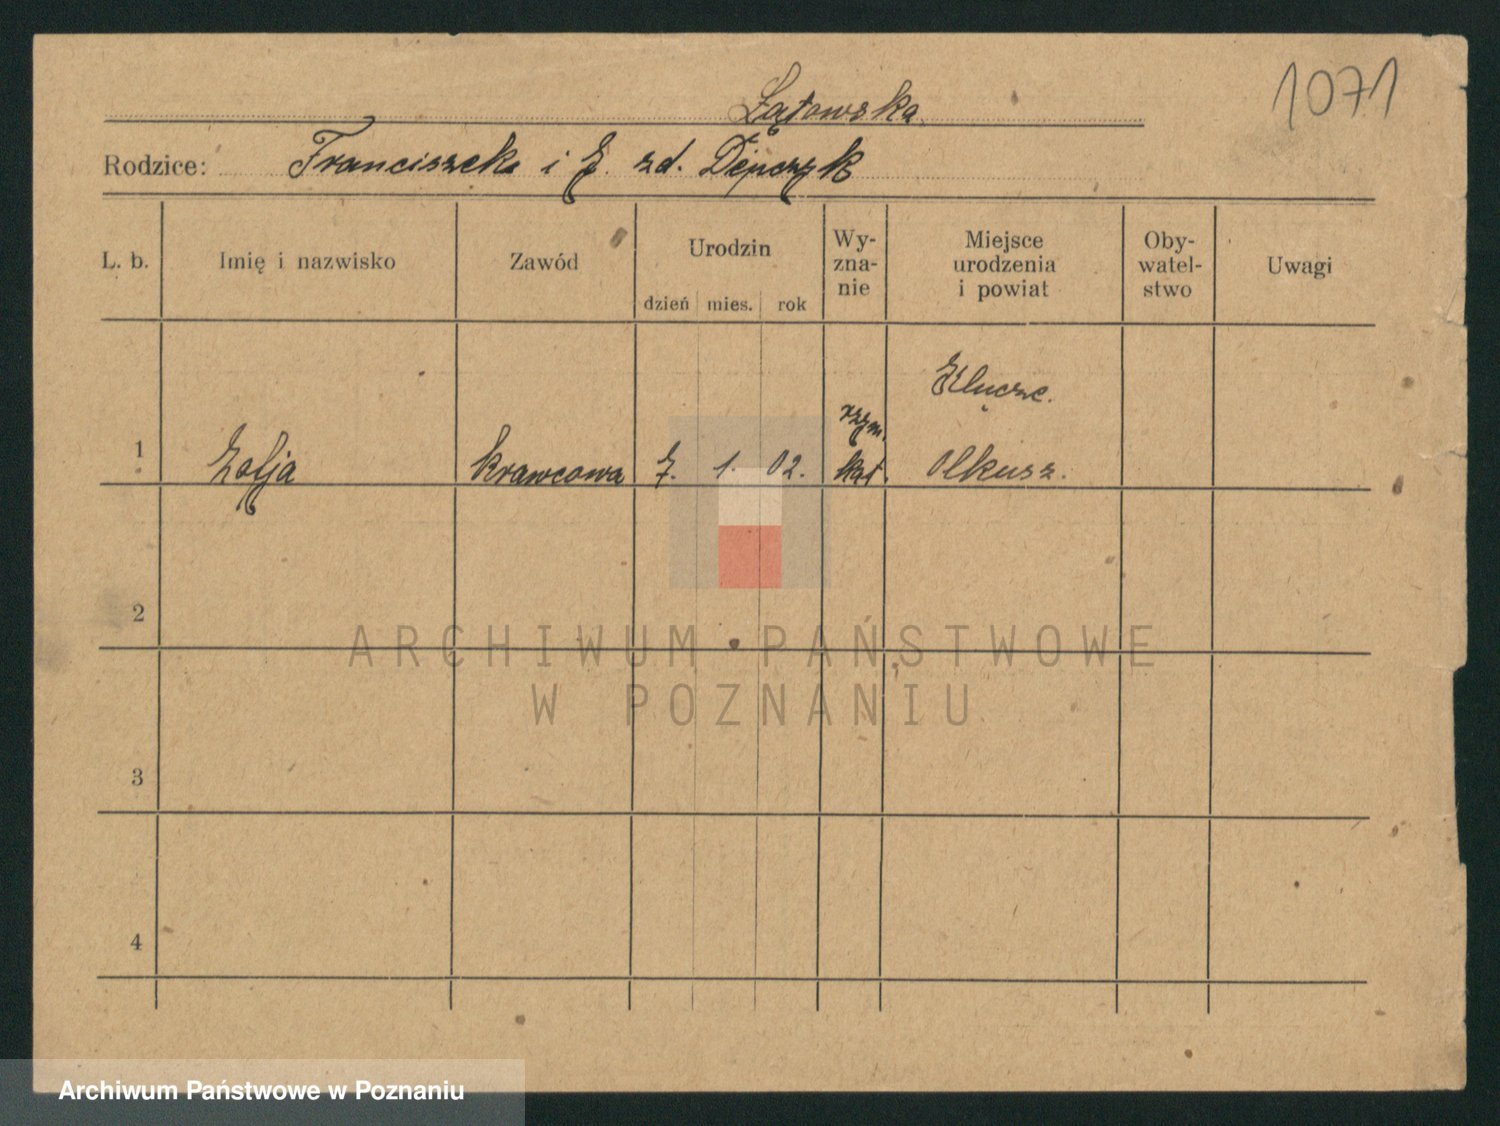 1071
Łątowska
Rodzice: Franciszek i Z. zd. Depczyk
L. b. Imię i nazwisko Zawód Urodzin dzień mies. rok Wy-zna-nie Miejsce urodzenia i powiat Oby-watel-stwo Uwagi
Klucze.
rzym.
1 Zofja krawcowa 7. 1. 02. kat. Olkusz.
2
ARCHIWUM PAŃSTWOWE
W POZNANIU
3
4
Archiwum Państwowe w Poznaniu